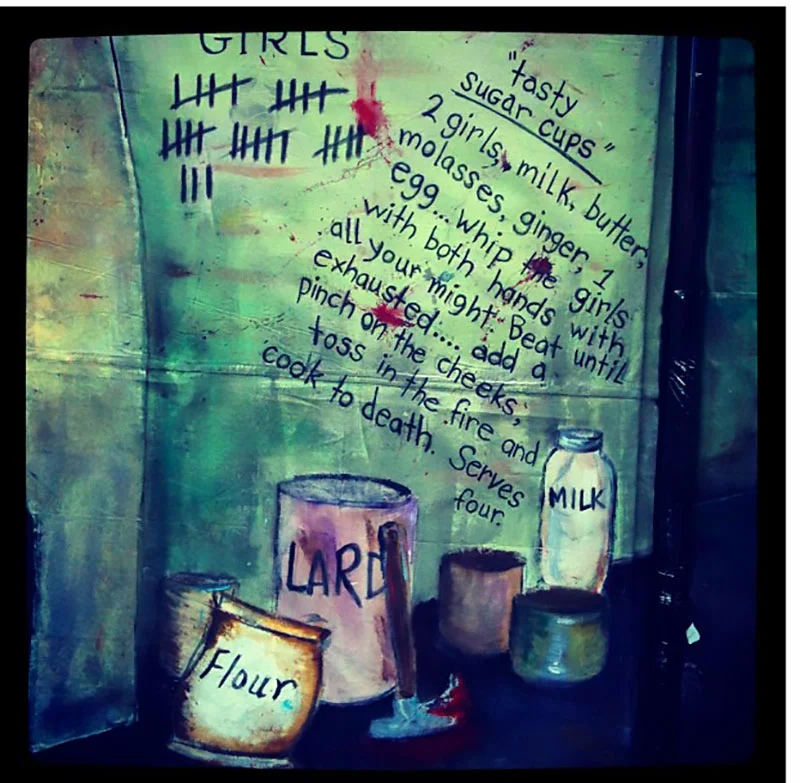 GIRLS
"tasty
sugar cups"
2 girls, milk, butter,
molasses, ginger, 1
egg... whip the girls
with both hands with
all your might. Beat until
exhausted.... add a
pinch on the cheeks,
toss in the fire and
cook to death. Serves
four.
MILK
LARD
Flour